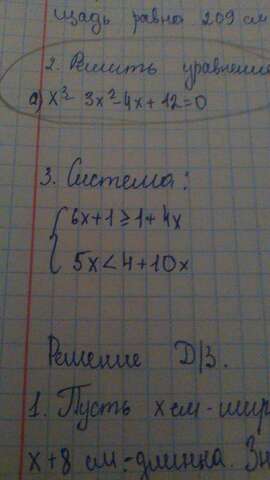 щадь равна 209 см
2. Решить уравнение
а) x³ - 3x² - 4x + 12 = 0
3. Система:
{ 6x + 1 ≥ 1 + 4x
5x < 4 + 10x
Решение Д/З.
1. Пусть x см - шир
x + 8 см - длинна. Зн